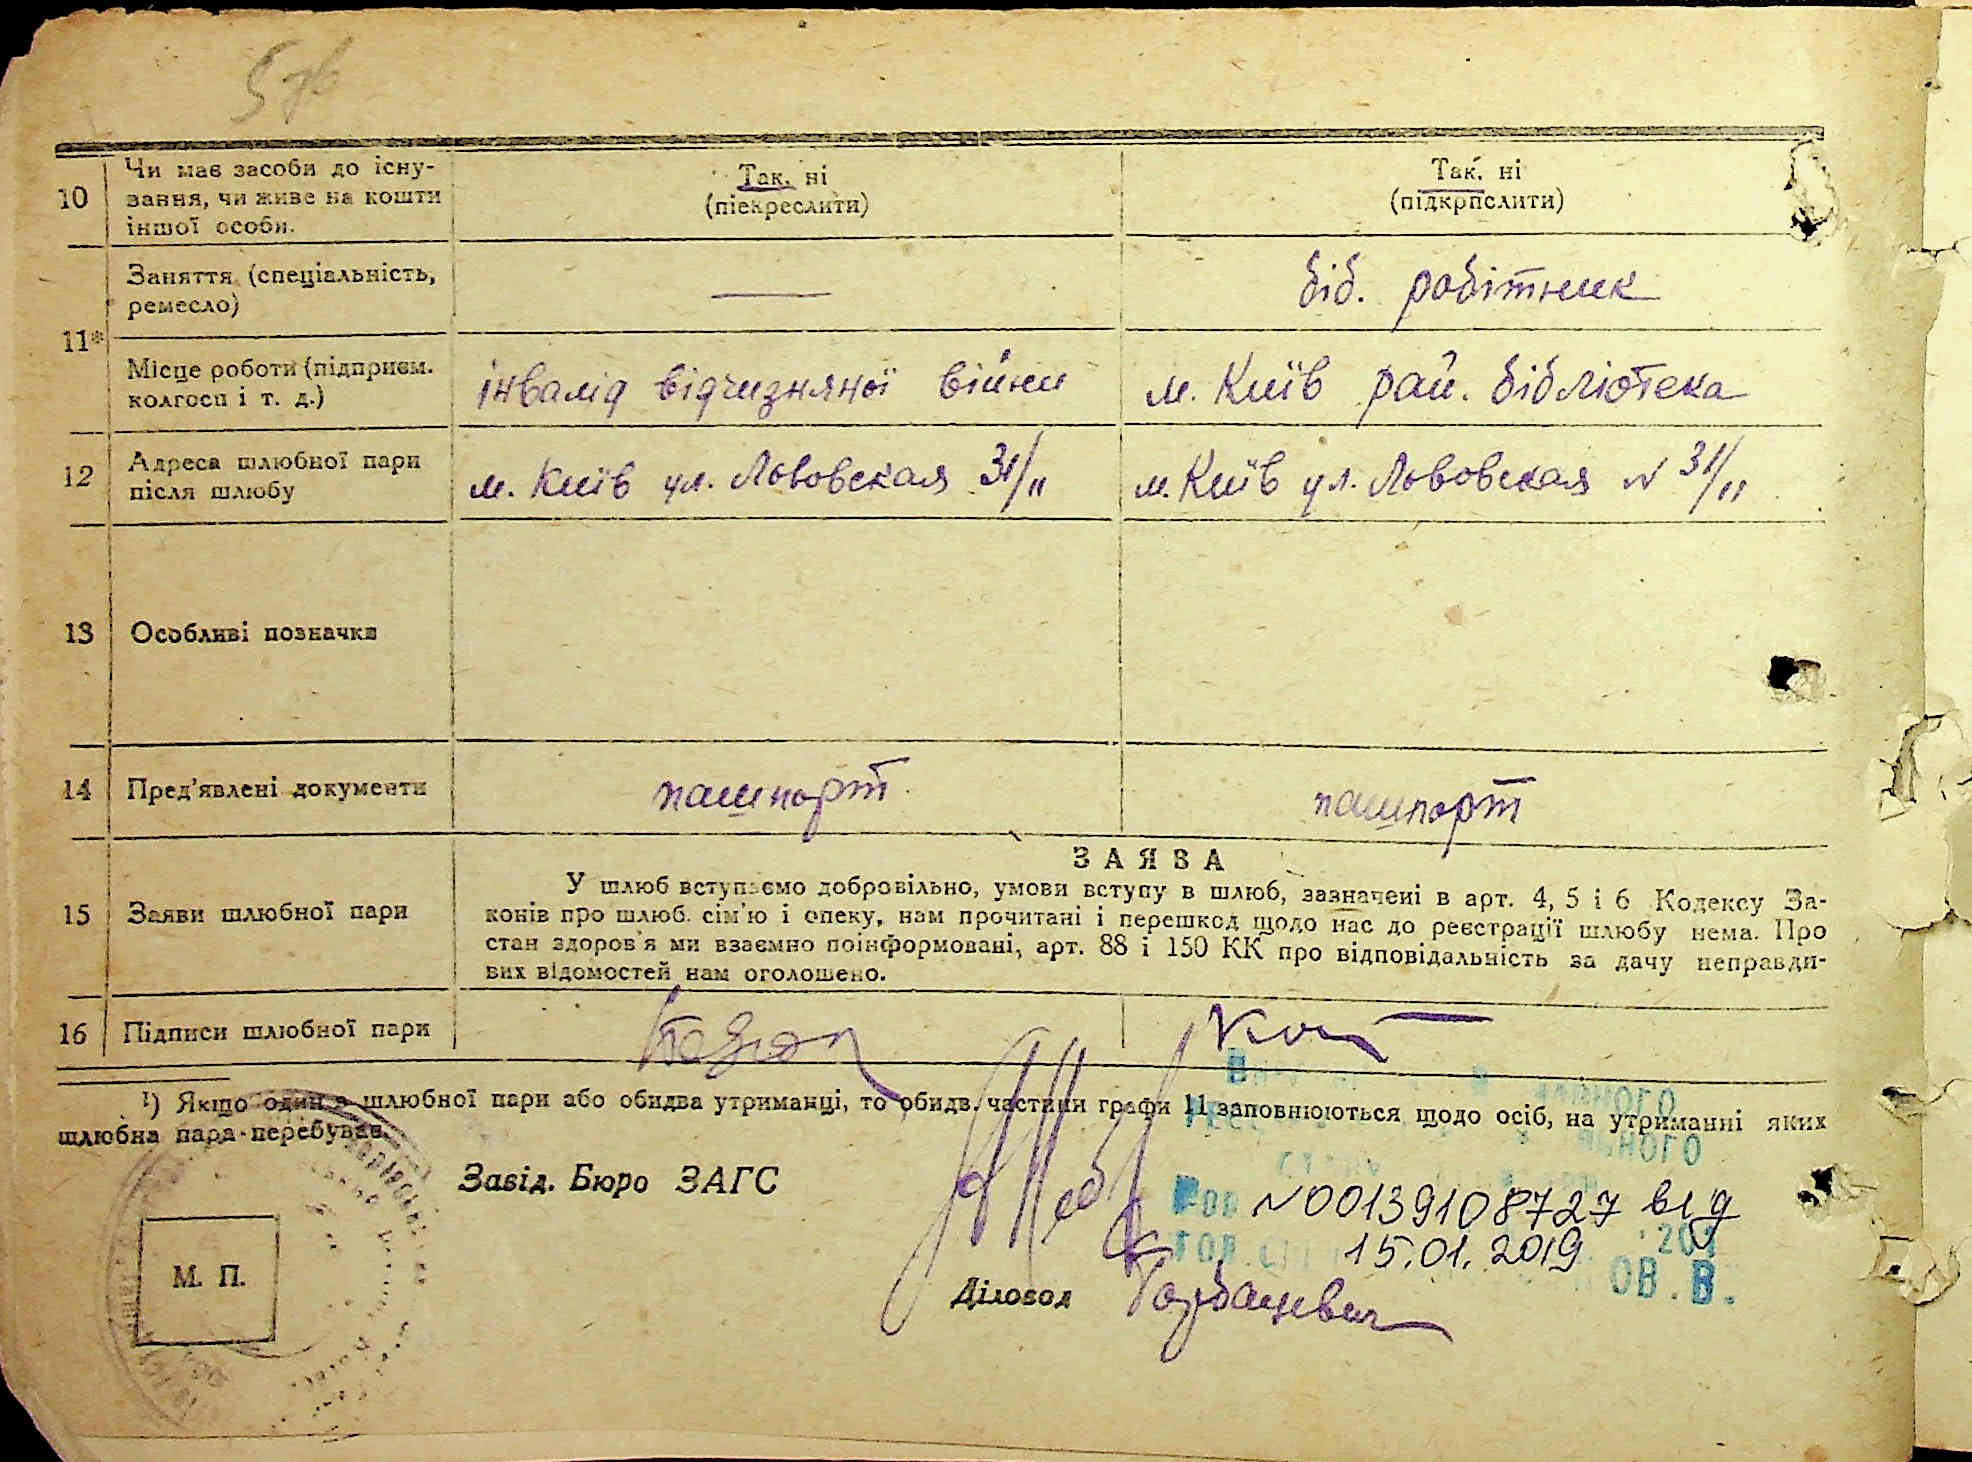 10
Чи має засоби до існу-
вання, чи живе на кошти
іншої особи.
Так, ні
(піекреслити)
Так, ні
(підкрпслити)
11*
Заняття (спеціальність,
ремесло)
—
біб. робітник
Місце роботи (підприєм.
колгосп і т. д.)
інвалід відчизняної війни
м. Київ рай. бібліотека
12
Адреса шлюбної пари
після шлюбу
м. Київ ул. Львовская 31/11
м. Київ ул. Львовская N 31/11
13
Особливі позначки
14
Пред'явлені документи
пашпорт
пашпорт
15
Заяви шлюбної пари
ЗАЯВА
У шлюб вступаємо добровільно, умови вступу в шлюб, зазначені в арт. 4, 5 і 6 Кодексу За-
конів про шлюб, сім'ю і опеку, нам прочитані і перешкод щодо нас до реєстрації шлюбу нема. Про
стан здоров'я ми взаємно поінформовані, арт. 88 і 150 КК про відповідальність за дачу неправди-
вих відомостей нам оголошено.
16
Підписи шлюбної пари
¹) Якщо один з шлюбної пари або обидва утриманці, то обидв. частини графи 11 заповнюються щодо осіб, на утриманні яких
шлюбна пара перебуває.
Завід. Бюро ЗАГС
N00139108727 від
15.01.2019
М. П.
Діловод
Горбацевич
ОВ.В.